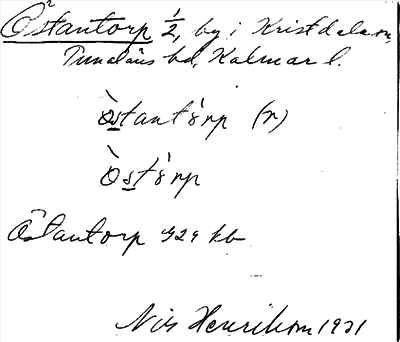 Östantorp 1/2, by i Kristdala sn,
Tunaläns hd, Kalmar l.
Òstantórp (r)
Òstórp
Östantorp 1929 kb
Nils Henrikson 1931